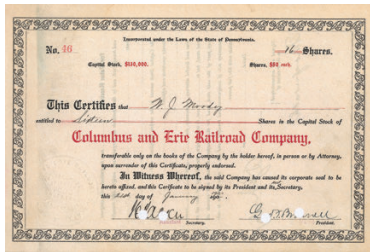 Incorporated under the Laws of the State of Pennsylvania.
No. 46
16 Shares.
Capital Stock, $150,000.
Shares, $50 each.
This Certifies that W. J. Moody
entitled to Sixteen Shares in the Capital Stock of
Columbus and Erie Railroad Company,
transferable only on the books of the Company by the holder hereof, in person or by Attorney,
upon surrender of this Certificate, properly endorsed.
In Witness Whereof, the said Company has caused its corporate seal to be
hereto affixed, and this Certificate to be signed by its President and its Secretary,
this day of January
Secretary.
President.